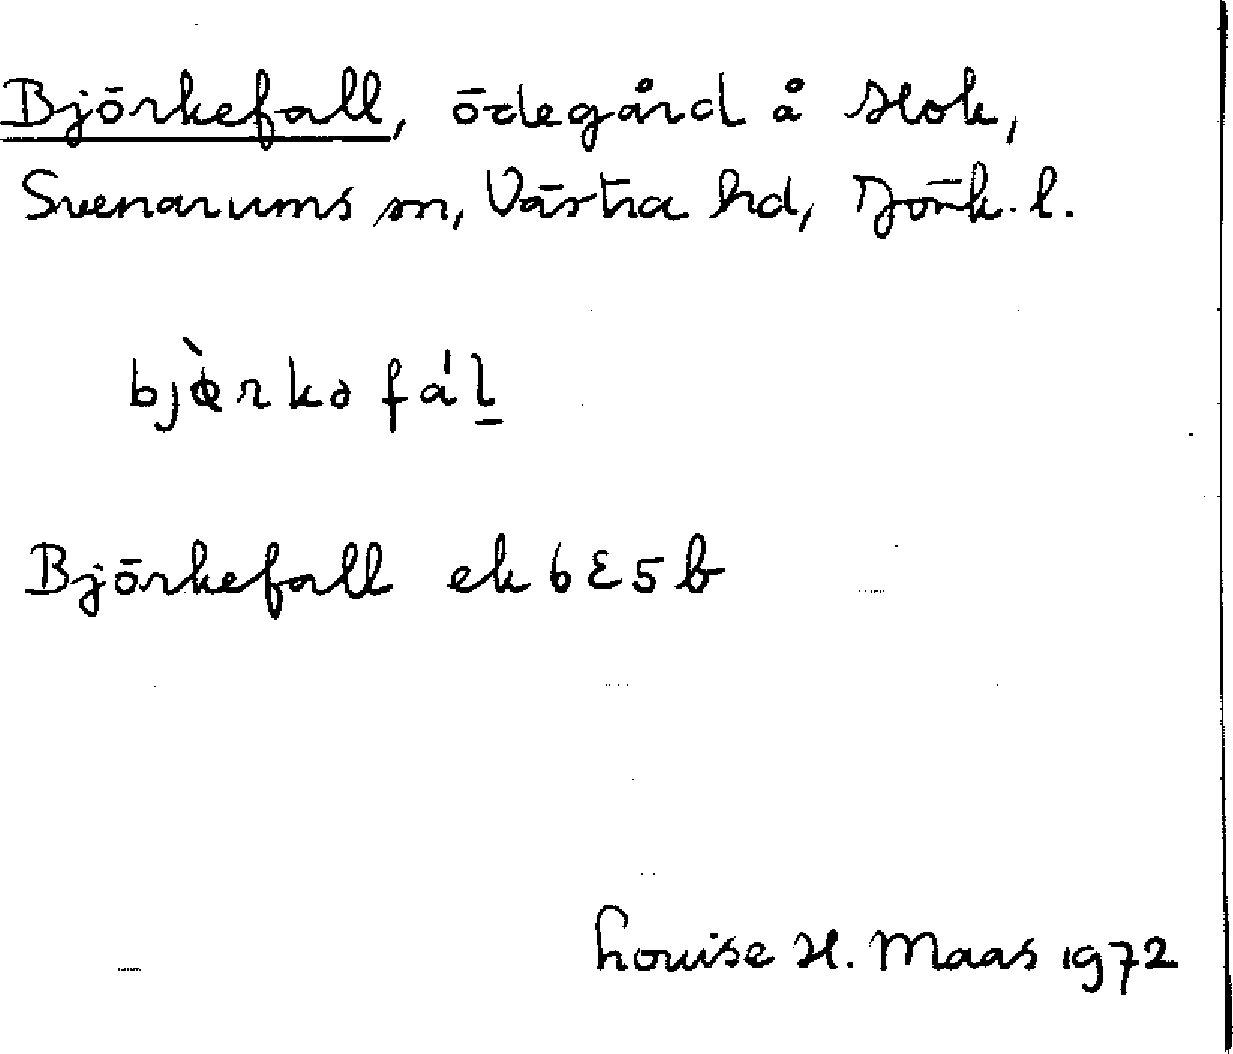 Björkefall, ödegård å Hok,
Svenarums sn, Västra hd, Jönk. l.
bjə̀rkəfál̲
Björkefall ek 6E5b
Louise H. Maas 1972